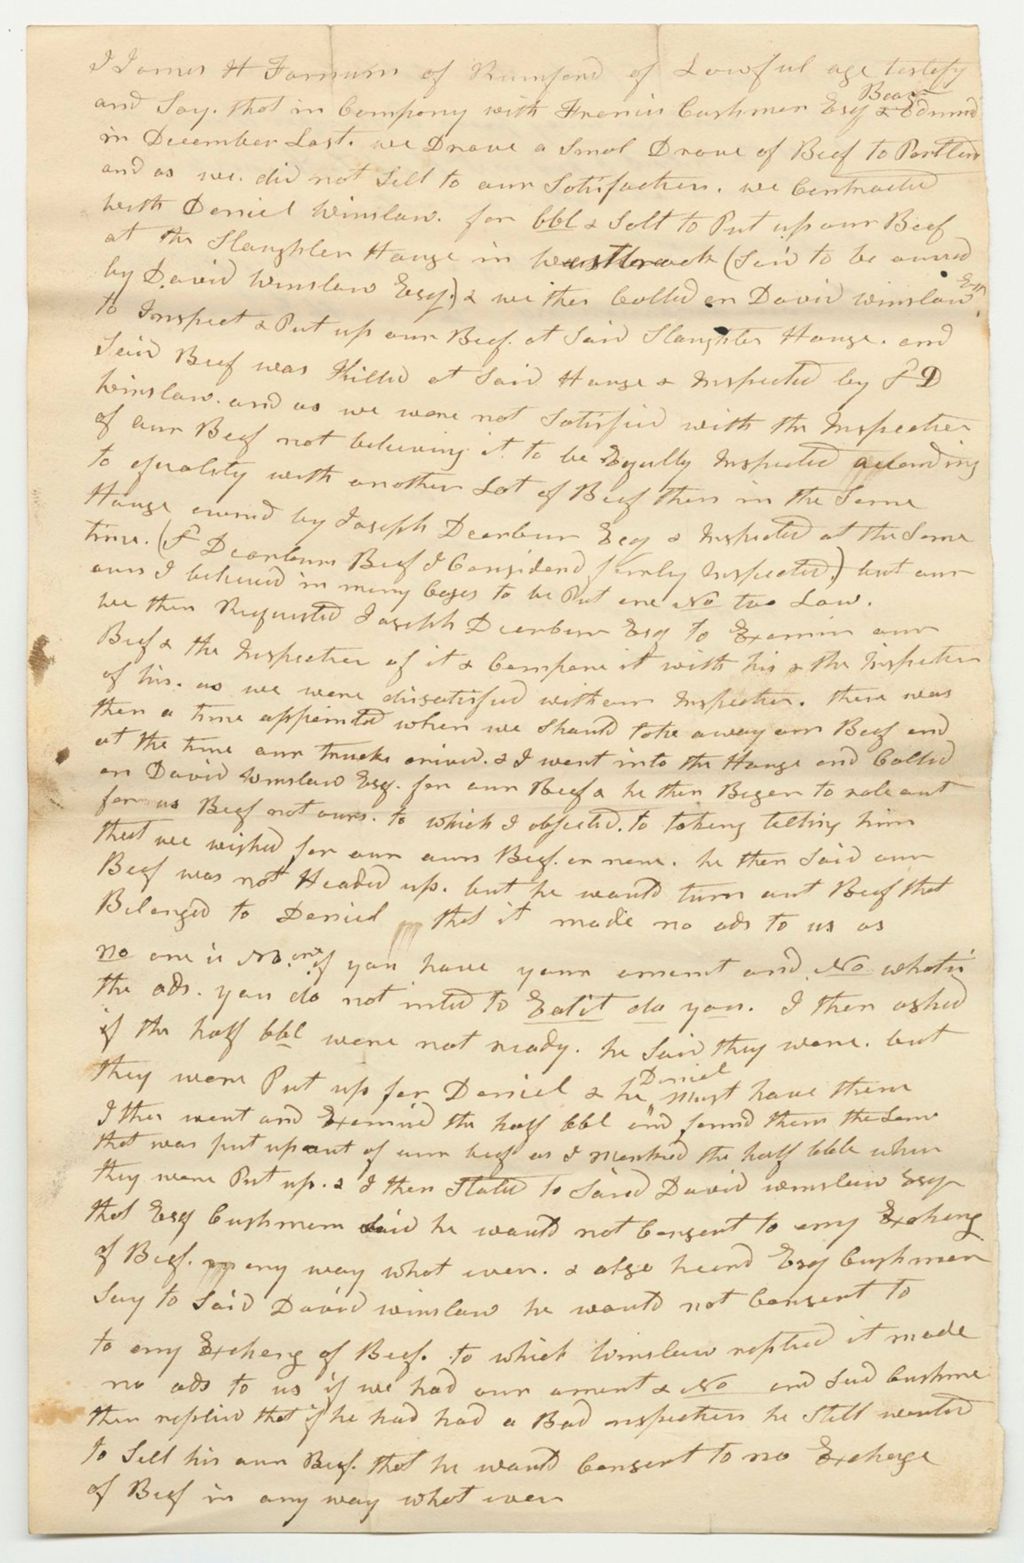 I James H Farnum of Rumford of Lawful age testify
and Say. that in Company with Francis Cushman Esq & Edmund Bean
in December Last. we Drove a Smal Drove of Beef to Portland
and as we. did not Sell to our Sotisfaction. we Contracted
with Daniel Winslow. for bbl & Solt to Put up our Beef
at the Slaughter House in Westbrook (Said to be owned
by David Winslow Esq.) & we then Called on David Winslow Esq
to Inspect & Put up our Beef. at Said Slaughter House. and
Said Beef was Killed at Said House & Inspected by Sd D
Winslow. and as we were not Sotisfied with the Inspection
of our Beef not believing it to be Eqully Inspected according
to quality with another Lot of Beef then in the Same
House owned by Joseph Dearburn Esq & Inspected at the Same
time. (Sd Dearburn Beef I Considerd fairly Inspected.) but our
own I believed in meny Cases to be Put one No two Low.
we then Requested Joseph Dearburn Esq to Examin our
Beef & the Inspection of it & Compare it with his & the Inspection
of his. as we were disatisfied with our Inspection. there was
then a time appointed when we Should take away our Beef and
at the time our trucks arived. & I went into the House and Called
on David Winslow Esq. for our Beef & he then Began to role out
for us Beef not ours. to which I objected. to taking telling him
that we wished for our own Beef. or none. he then Said our
Beef was not Headed up. but he would turn out Beef that
Belonged to Daniel that it made no ods to us as
no one is No. one if you have your amount and No whats
the ods. you do not inted to Eat it do you. I then asked
if the half bbl were not ready. he Said they were. but
they were Put up for Daniel & he Daniel Must have them
I then went and Examined the half bbl and found them the Same
that was put up out of our beef as I Marked the half bbls when
they were Put up. & I then Stated to Said David Winslow Esqr
that Esq Cushman Said he would not Consent to any Exchang
of Beef. any way what ever. & also heard Esq Cushman
Say to Said David Winslow he would not Consent to
to any Exchang of Beef. to which Winslow replied it made
no ods to us if we had our amont & No and Said Cushmn
then replied that if he had had a Bad inspection he Still wanted
to Sell his own Beef. that he would Consent to no Exchange
of Beef in any way what ever